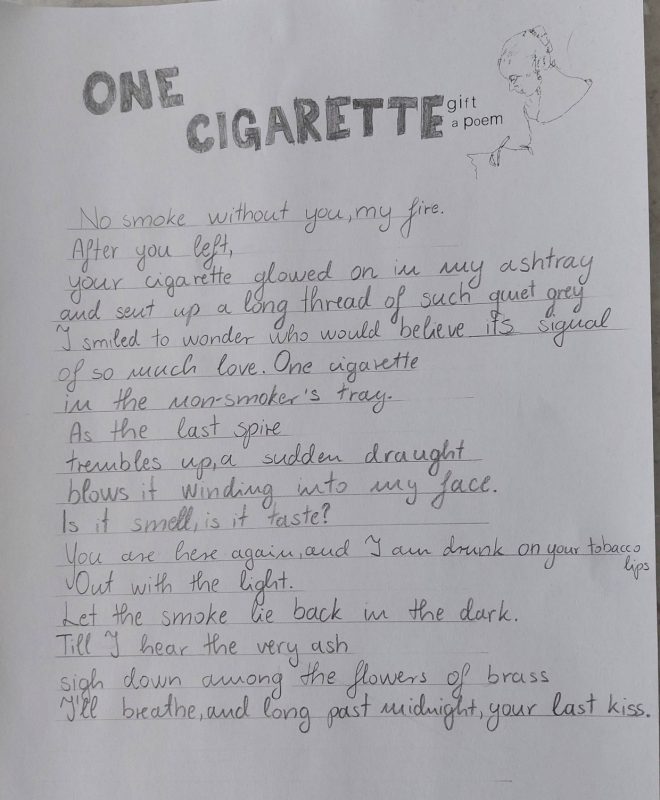 ONE
CIGARETTE
gift
a poem
No smoke without you, my fire.
After you left,
your cigarette glowed on in my ashtray
and sent up a long thread of such quiet grey
I smiled to wonder who would believe its signal
of so much love. One cigarette
in the non-smoker's tray.
As the last spire
trembles up, a sudden draught
blows it winding into my face.
Is it smell, is it taste?
You are here again, and I am drunk on your tobacco
lips
Out with the light.
Let the smoke lie back in the dark.
Till I hear the very ash
sigh down among the flowers of brass
I'll breathe, and long past midnight, your last kiss.